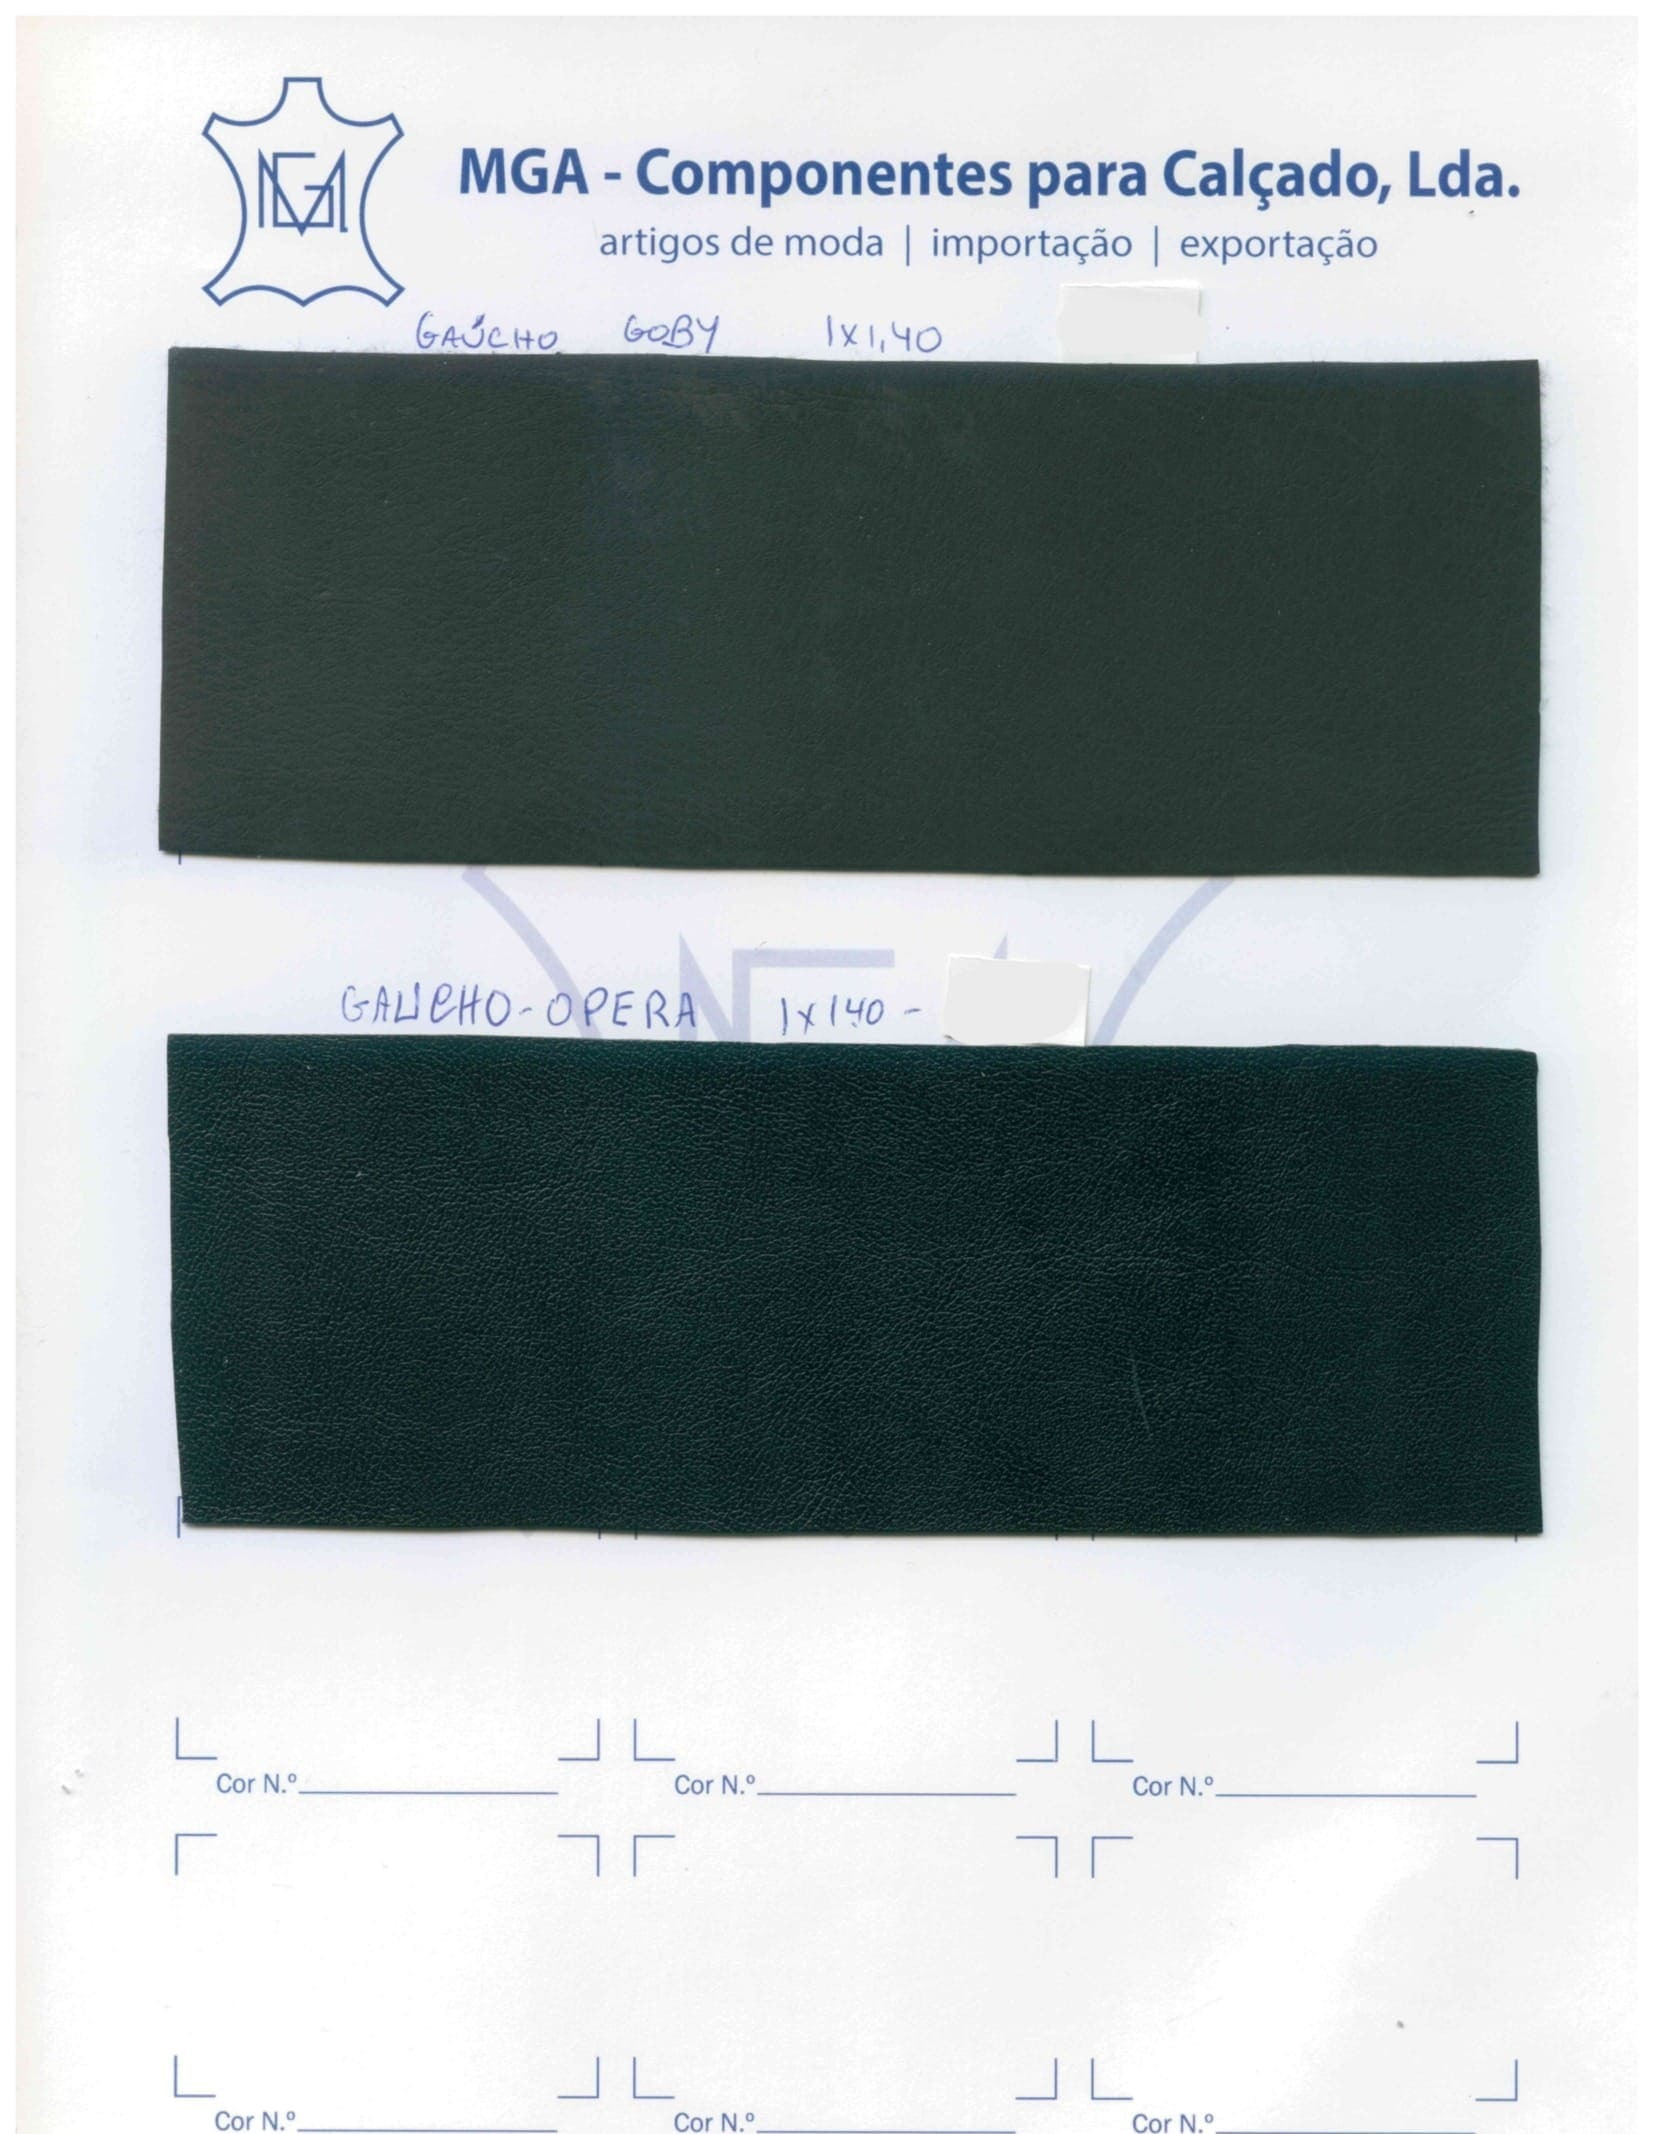 MGA
MGA - Componentes para Calçado, Lda.
artigos de moda | importação | exportação
GAÚCHO GOBY 1X1,40
GAUCHO-OPERA 1X1.40 -
Cor N.º Cor N.º Cor N.º
Cor N.º Cor N.º Cor N.º